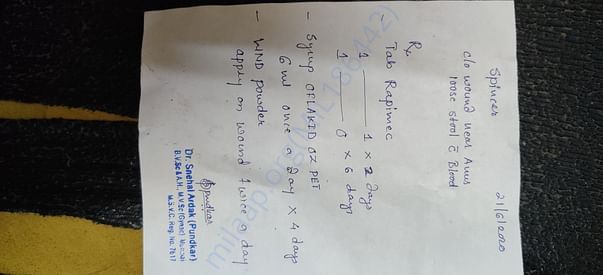 Spincer 21/6/2020
c/o wound near Anus
loose stool c̄ Blood
Rx
- Tab Rapimec
1 — 1 x 2 days
1 — 0 x 6 days
- Syrup OFLAKID OZ PET
6 ml once a day x 4 days
- WND powder
apply on wound twice a day
Dr. Snehal Ardak (Pundkar)
B.V.Sc & A.H., M.V.Sc (Gynac)
M.S.V.C. Reg. No. 7617
milaap.org(MIL186442)